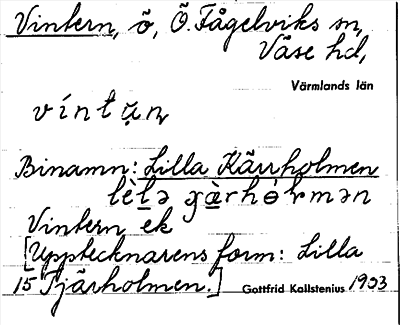 Vintern, ö, Ö. Fågelviks sn,
Väse hd,
Värmlands län
Binamn: Lilla Kärrholmen
Vintern ek
[Upptecknarens form: Lilla
15 Tjärholmen.] Gottfrid Kallstenius 1933